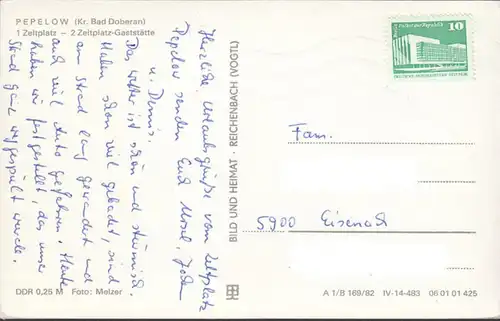 PEPELOW (Kr. Bad Doberan)
1 Zeltplatz – 2 Zeltplatz-Gaststätte
Herzliche Urlaubsgrüße vom Zeltplatz
Pepelow senden Euch Ursel,
u. Dennis.
Das Wetter ist schön und stürmisch.
Haben schon viel gebadet, sind
am Strand lang gewandert und
auch viel Auto gefahren. Heute
haben wir festgestellt, das unser
Strand ganz weggespült wurde.
DDR 0,25 M Foto: Melzer
BILD UND HEIMAT · REICHENBACH (VOGTL)
10
Fam.
5900 Eisenach
A 1/B 169/82 IV-14-483 06 01 01 425